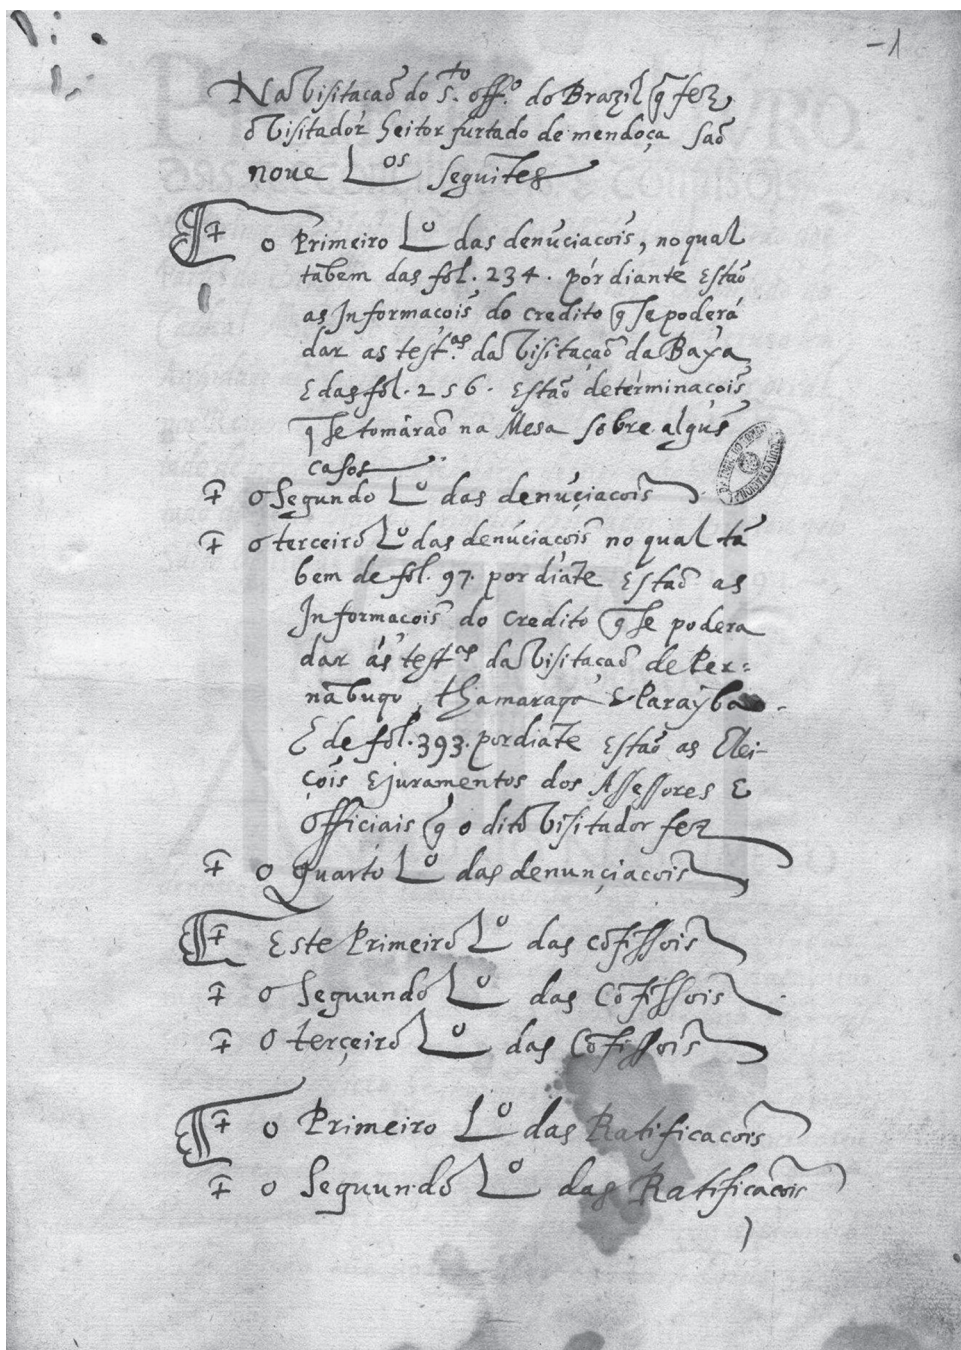 -1
Na Visitacaõ do s.to off.o do Brazil q̃ fez
o Visitador heitor furtado de mendoça saõ
noue L.os seguites
o Primeiro L.o das denũciacois, no qual
tabem das fol. 234. por diante estão
as Informacois do credito q̃ se poderá
dar as test.as da Visitaçaõ da Baya
E das fol. 256. estão determinacois
q̃ se tomáraõ na Mesa sobre algũs
casos
o Segundo L.o das denũçiacois
o terceiro L.o das denũciacois no qual tã
bem de fol. 97. por diãte estaõ as
Informacois do credito q̃ se podera
dar ás test.as da Visitaçaõ de Per=
nãbuquo, thamaraqa E Parayba
E de fol. 393. por diãte estaõ as Elei-
çõis E juramentos dos Assessores E
officiais q̃ o dito Visitador fez
o quarto L.o das denunçiacois
Este Primeiro L.o das cõfissois
o Seguundo L.o das Cõfissois
o terçeiro L.o das Cõfissois
o Primeiro L.o das Ratificacois
o Seguundo L.o das Ratificacois